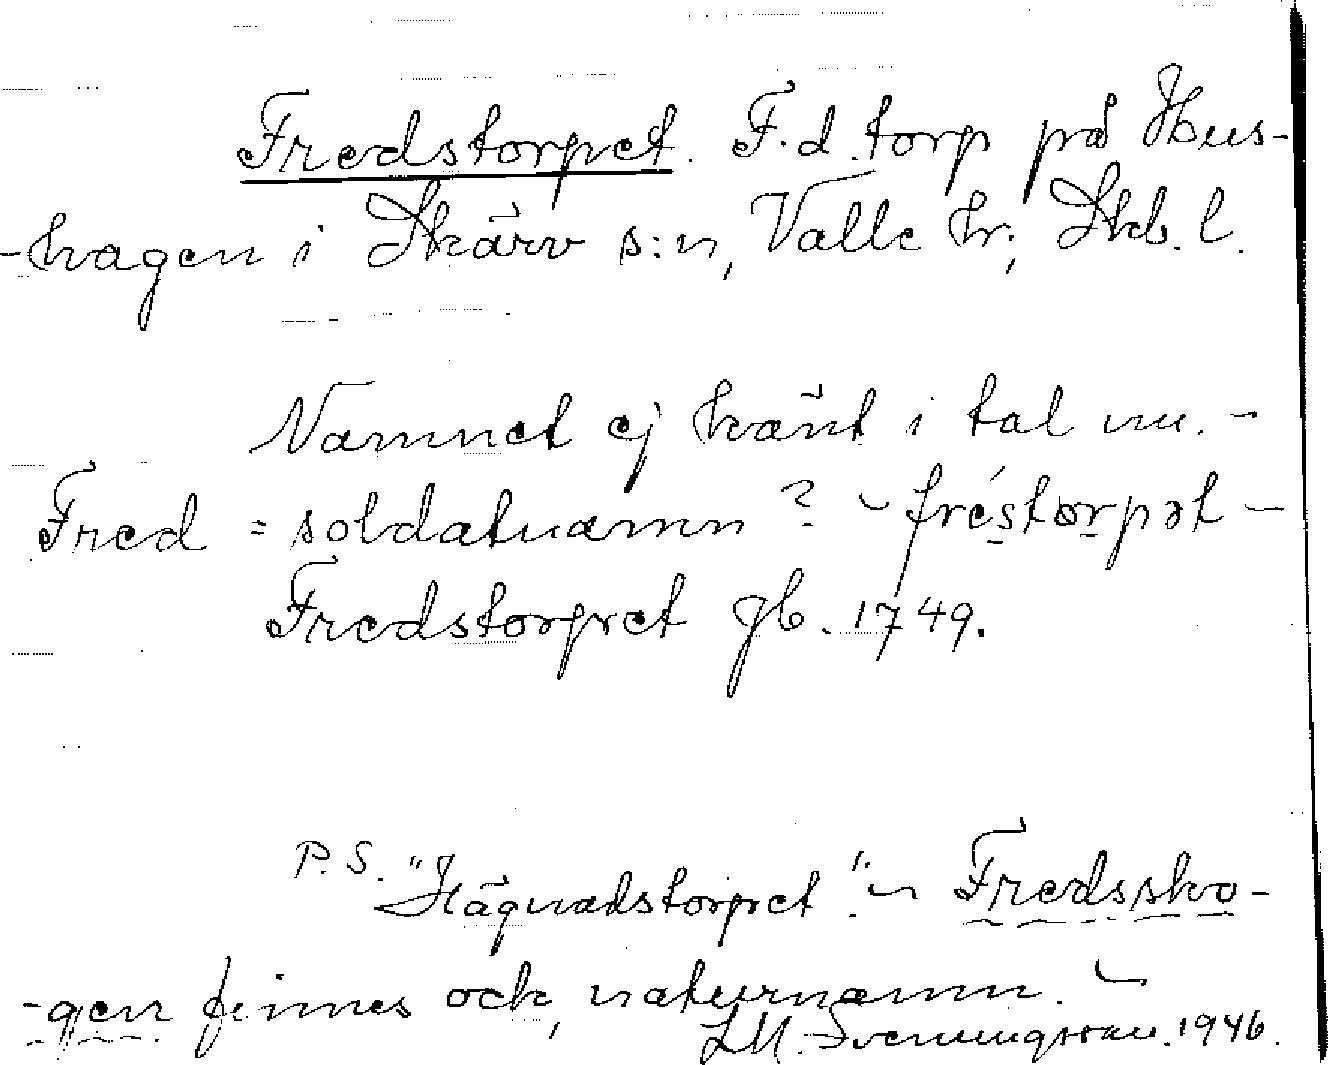 Fredstorpet. F.d. torp på Hus-
-hagen i Skärv s:n, Valle hr; Skb. l.
Namnet ej känt i tal nu. -
Fred = soldatnamn? - fréstorpət -
Fredstorpet gb. 1749.
P.S. "Hägnadstorpet". - Fredssko-
-gen finnes ock, naturnamn. -
LM. Svenungsson. 1946.